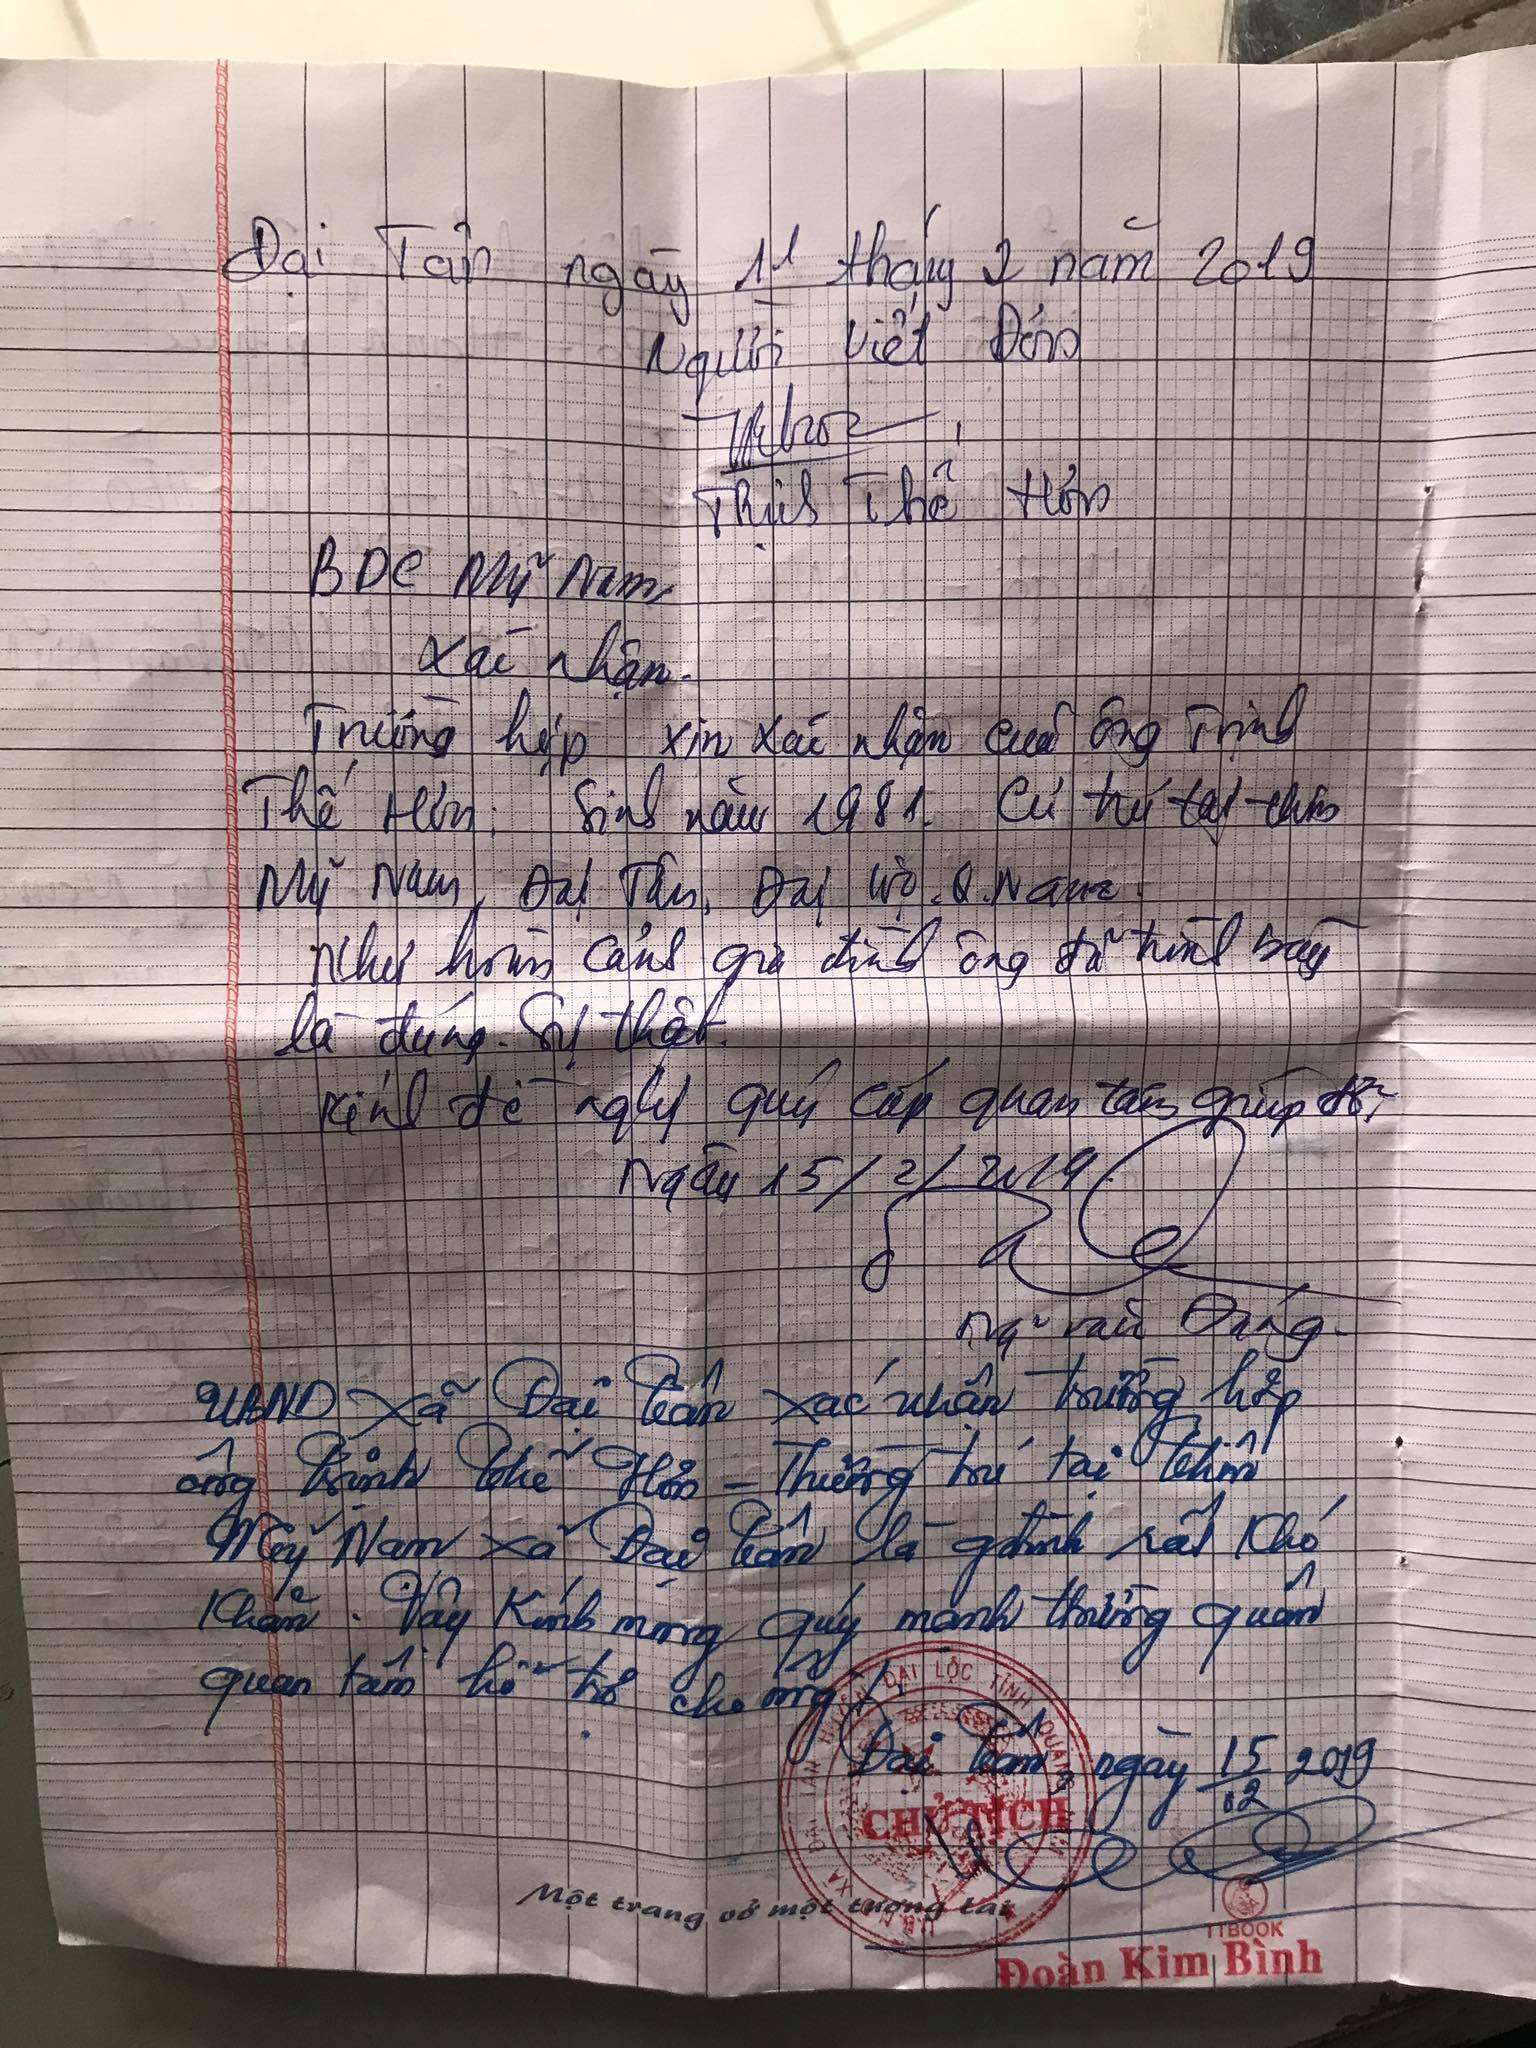 Đại Tân ngày 11 tháng 2 năm 2019
Người viết Đơn
Trịnh Thế Hơn
BDC Mỹ Nam
Xác nhận.
Trường hợp xin xác nhận của ông Trịnh
Thế Hơn. Sinh năm 1981. Cư trú tại thôn
Mỹ Nam, Đại Tân, Đại Lộc. Q. Nam.
Như hoàn cảnh gia đình ông đã trình bày
là đúng. Sự thật.
Kính đề nghị quý cấp quan tâm giúp đỡ,
Ngày 15/2/2019
Văn Đương.
UBND xã Đại Tân xác nhận trường hợp
ông Trịnh Thế Hơn - Thường trú tại thôn
Mỹ Nam xã Đại Tân là gđình rất khó
khăn. Vậy kính mong quý mạnh thường quân
quan tâm hỗ trợ cho ông/
Đại Tân, ngày 15/02 2019
U.B.N.D XÃ ĐẠI TÂN HUYỆN ĐẠI LỘC TỈNH QUẢNG NAM
CHỦ TỊCH
Một trang vở một tương lai
TTBOOK
Đoàn Kim Bình